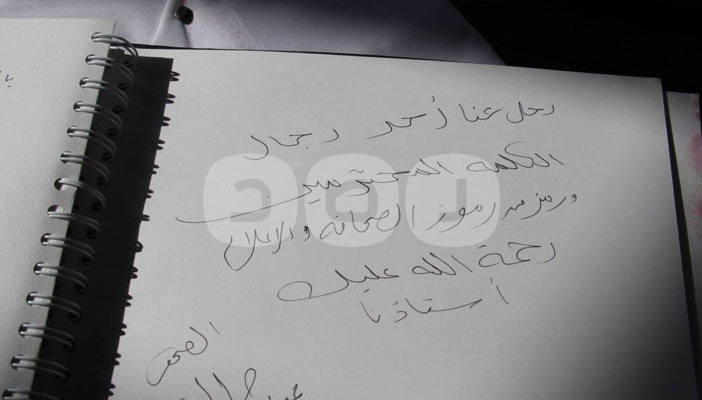 رحل عنا أحد رجال
الكلمة المحترمين
ورمز من رموز الصحافة والاعلام
رحمة الله عليك
أستاذنا